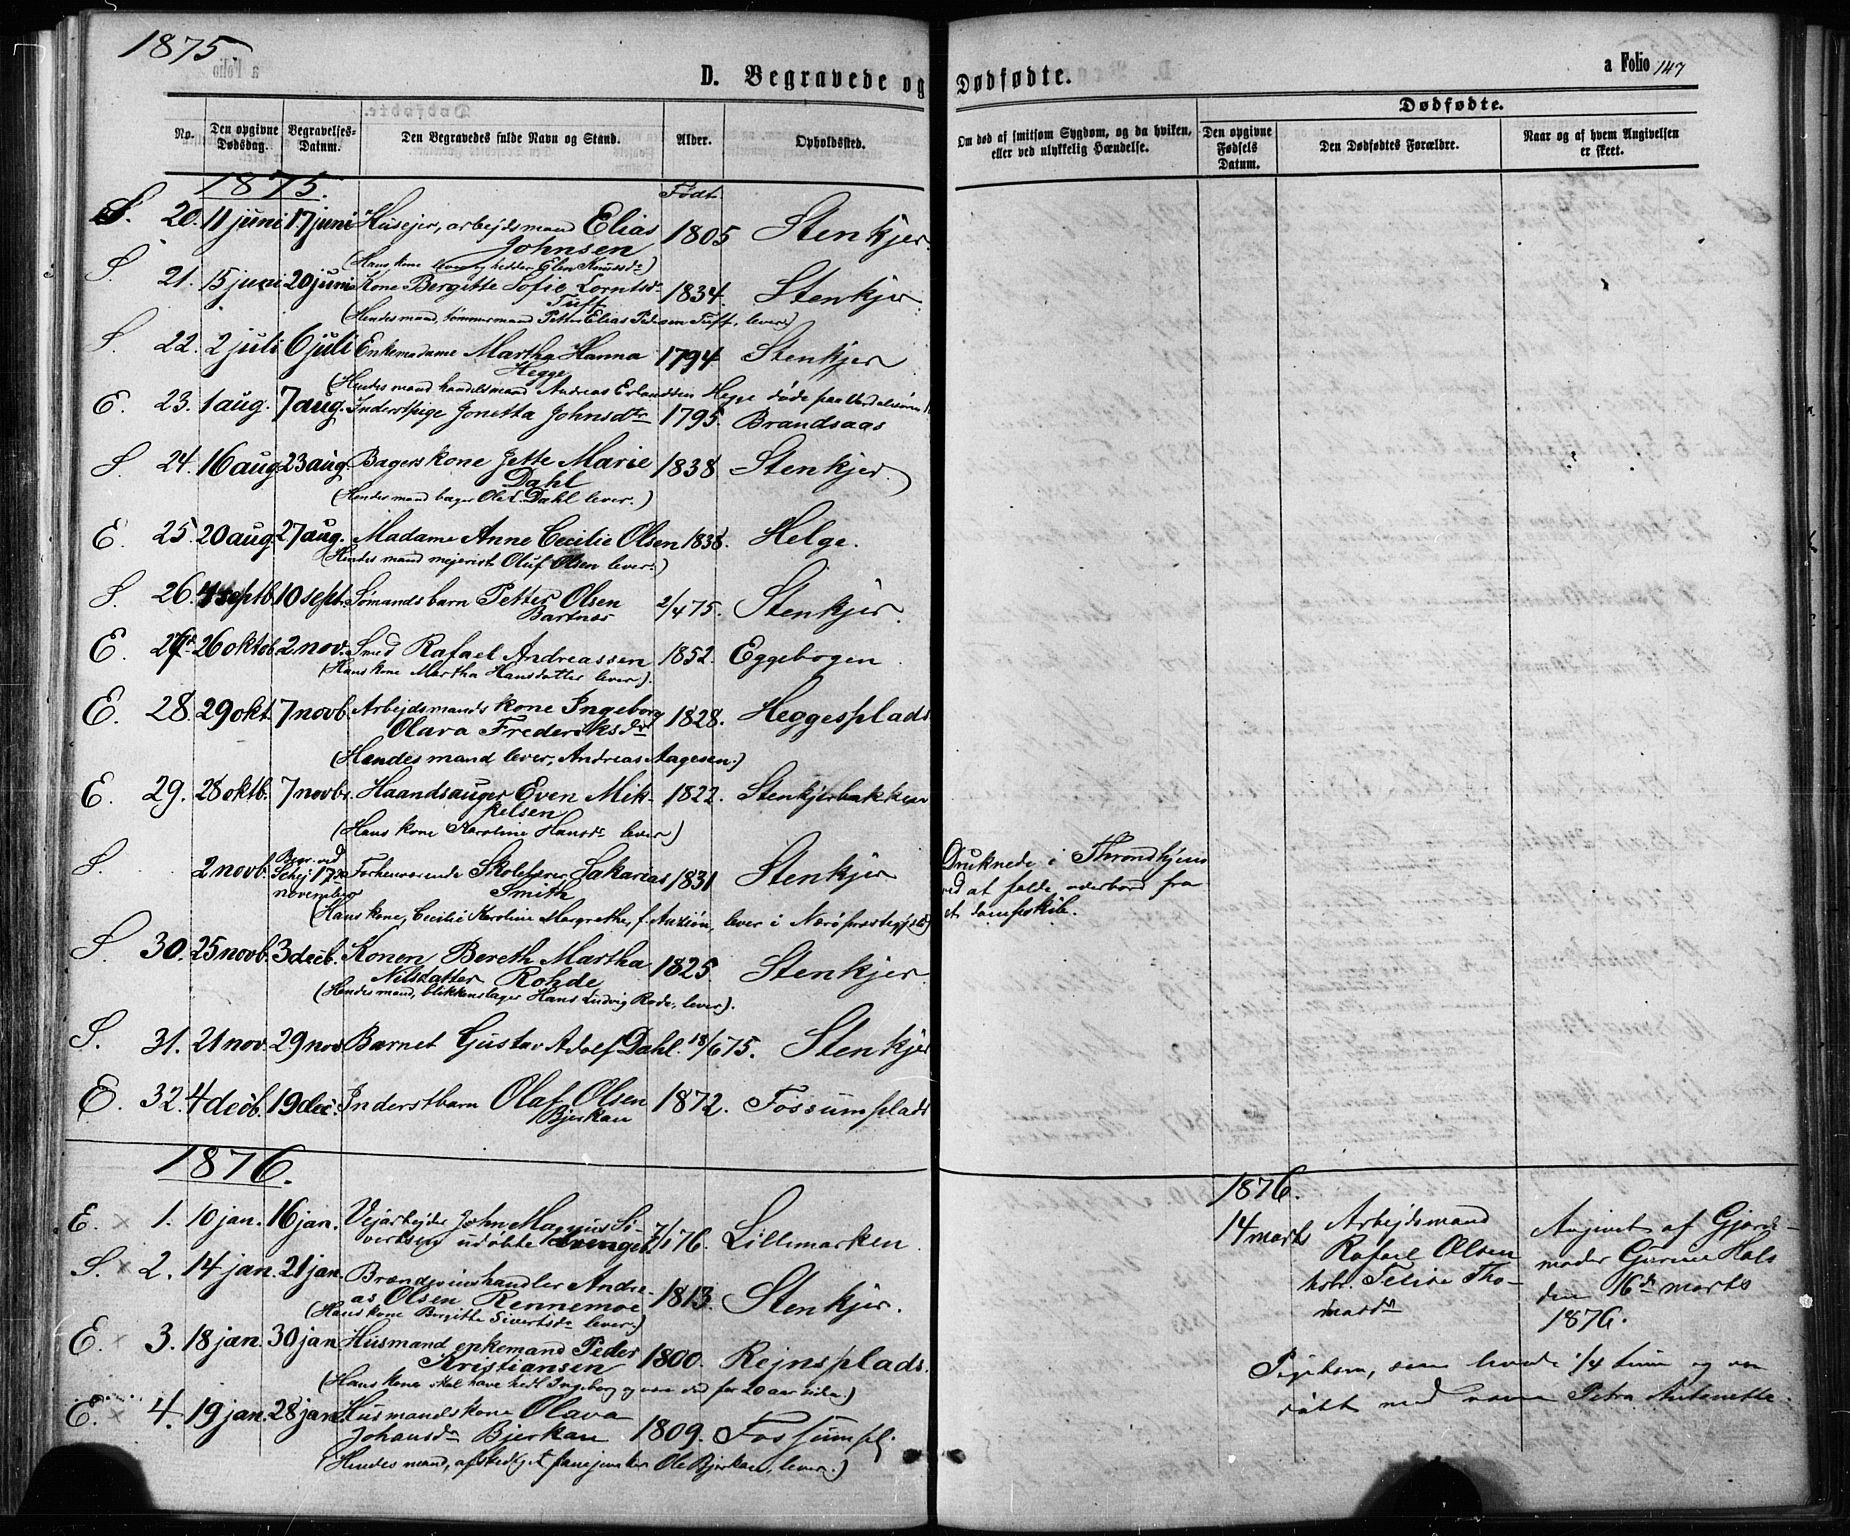 1875
D. Begravede og Dødfødte.
a Folio 147
No.
Den opgivne Dødsdag.
Begravelses-Datum.
Den Begravedes fulde Navn og Stand.
Alder.
Opholdssted.
Om død af smitsom Sygdom, og da hvilken, eller ved ulykkelig Hændelse.
Dødfødte.
Den opgivne Fødsels Datum.
Den Dødfødtes Forældre.
Naar og af hvem Angivelsen er skeet.
1875.
Født
S. 20. 11 juni 17 juni Husejer, arbejdsmand Elias 1805 Stenkjer.
Johnsen
(Hans kone lever og hedder Elen Knudsdr)
S. 21. 15 juni 20 juni Kone Bergitte Sofie Lorntsdr 1834. Stenkjer
Tuff
(Hendes mand, tømmermand Petter Elias Pedersen Tuff, lever.)
S. 22. 2 juli 6 juli Enkemadame Martha Hanna 1794 Stenkjer
Hegge
(Hendes mand handelsmand Andreas Erlandsen Hegge døde paa Verdalsøren)
E. 23. 1 aug. 7 aug. Inderstpige Jonetta Johnsdtr 1795. Brandsaas
S. 24. 16 aug. 23 aug. Bagerskone Jette Marie 1838 Stenkjer.
Dahl
(Hendes mand bager Ole L. Dahl lever.)
E. 25. 20 aug. 27 aug. Madame Anne Cecilie Olsen 1838. Helge.
(Hendes mand mejerist Oluf Olsen lever.)
S. 26. 4 septb. 10 sept. Sømandsbarn Petter Olsen 2/4 75. Stenkjer.
Bartnes
E. 27. 26 oktob. 2 nov. Smed Rafael Andreassen 1852. Eggebogen
(Hans kone Martha Hansdatter lever).
E. 28. 29 okt. 7 novb. Arbejdsmands kone Ingeborg 1828. Heggesplads
Olava Frederiksdr
(Hendes mand lever, Andreas Aagesen.)
E. 29. 28 oktb. 7 novbr. Haandsauger Even Mik- 1822. Stenkjerbakken
kelsen
(Hans kone Karoline Hansdr lever)
S. 2 novb. Begr. ved Schej 17de november Forhenværende Skolelærer Sakarias 1831 Stenkjer
Smith
Druknede i Throndhjem
ved at falde overbord fra
et dampskib.
(Hans kone, Cecilie Karoline Margrethe, f. Anzion, lever i Nærø præstegjeld)
S. 30. 25 novb. 3 decb. Konen Bereth Martha 1825 Stenkjer
Nilsdatter Rohde
(Hendes mand, blikkenslager Hans Ludvig Rode, lever).
S. 31. 21 nov. 29 nov. Barnet Gustav Adolf Dahl. 18/6 75. Stenkjer
E. 32. 4 decb. 19 dec. Inderstbarn Olaf Olsen 1872. Fossumplads
Bjerkan
1876.
E. 1. 10 jan. 16 jan. Vejarbejder John Magnus Si- 7/1 76. Lillemarken.
vertsens udøbte drengeb.
S. 2. 14 jan. 21 jan. Brændevinshandler Andre- 1813. Stenkjer.
as Olsen Rennemoe
(Hans kone Bergitte Sivertsdr lever.)
E. 3. 18 jan. 30 jan. Husmand enkemand Peder 1800. Rejnsplads.
Kristiansen
(Hans kone skal have hedt Ingeborg og være død for 20 aar siden.)
E. 4. 19 jan. 28 jan. Husmandskone Olava 1809. Fossumpl.
Johansdr Bjerkan
(Hendes mand, afskediget janejenker Ole Bjerkan, lever.)
1876.
14 marts
Arbejdsmand
Rafael Olsen
Felixe Tho-
masdr
Angivet af Gjord-
moder Gurine Hals
den 16de marts
1876.
Pigebarn, som levede 1/4 time og var
døbt med navn Petra Antonette.